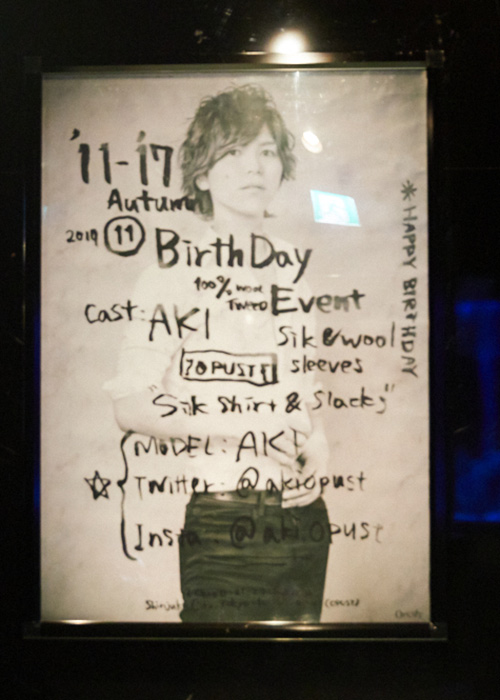 '11-17
Autumn
2019 ⑪ BirthDay
100% wool
Tweed Event
Cast: AKI
Silk & wool
sleeves
"Silk Shirt & Slacks"
MODEL: AKI
☆ Twitter: @akiopust
Insta: @aki.opust
* HAPPY BIRTHDAY